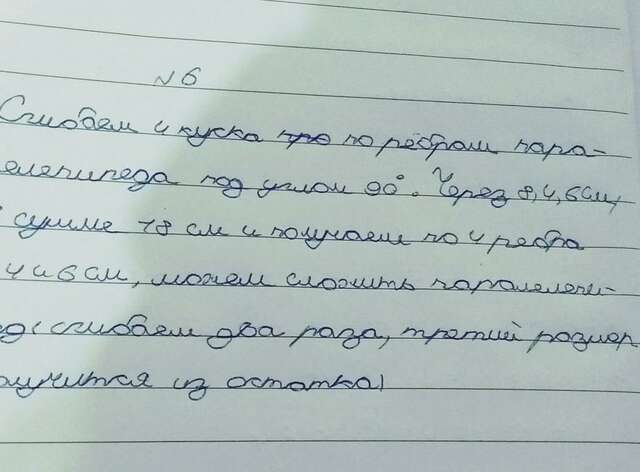 № 6
Сгибаем 4 куска по рёбрам пара-
лелепипеда под углом 90°. Через 8, 4, 6 см,
сумме 18 см и получаем по 4 ребра
4 и 6 см, можем сложить паралелепи-
ед (сгибаем два раза, третий размер
олучится из остатка)